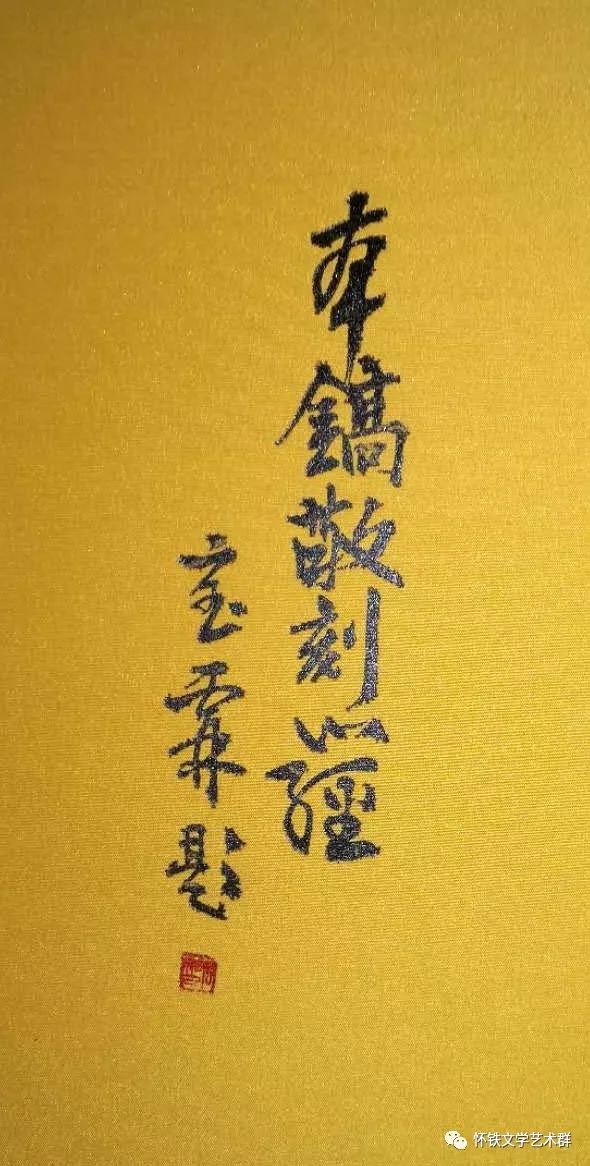 本鎬敬刻心經
宝霖題
怀铁文学艺术群